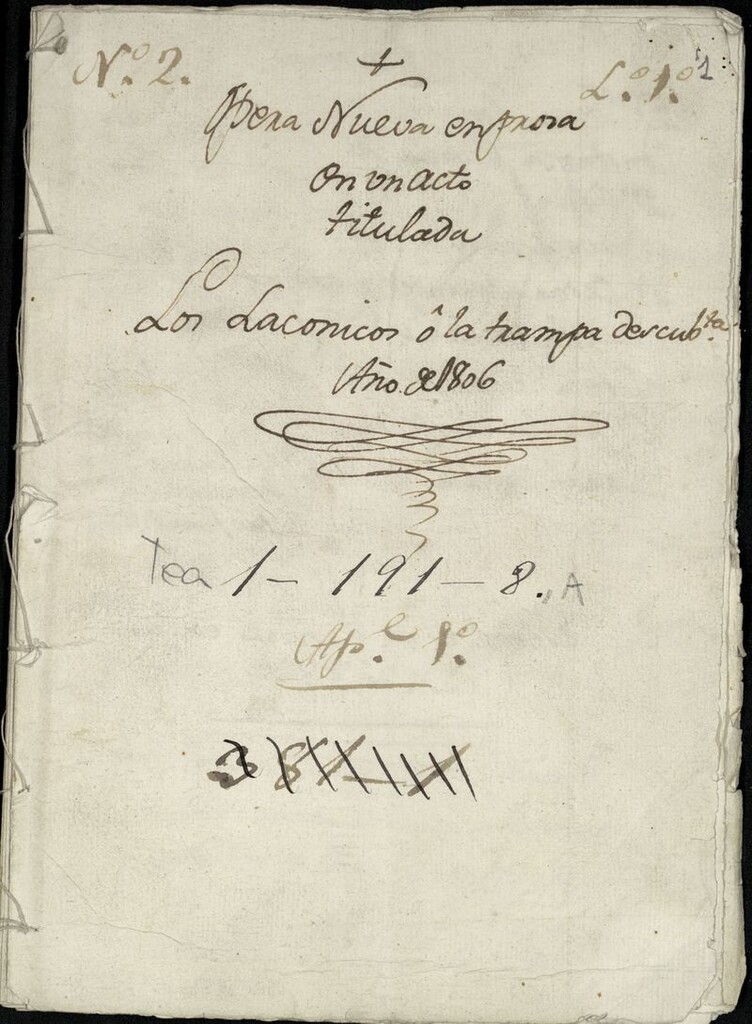 Nº 2.
+
L.º 1.º
1
Opera Nueva en prosa
En un Acto
titulada
Los Laconicos ô la trampa descub.ta
Año de 1806
Tea 1 - 191 - 8., A
Ap.l 1.º